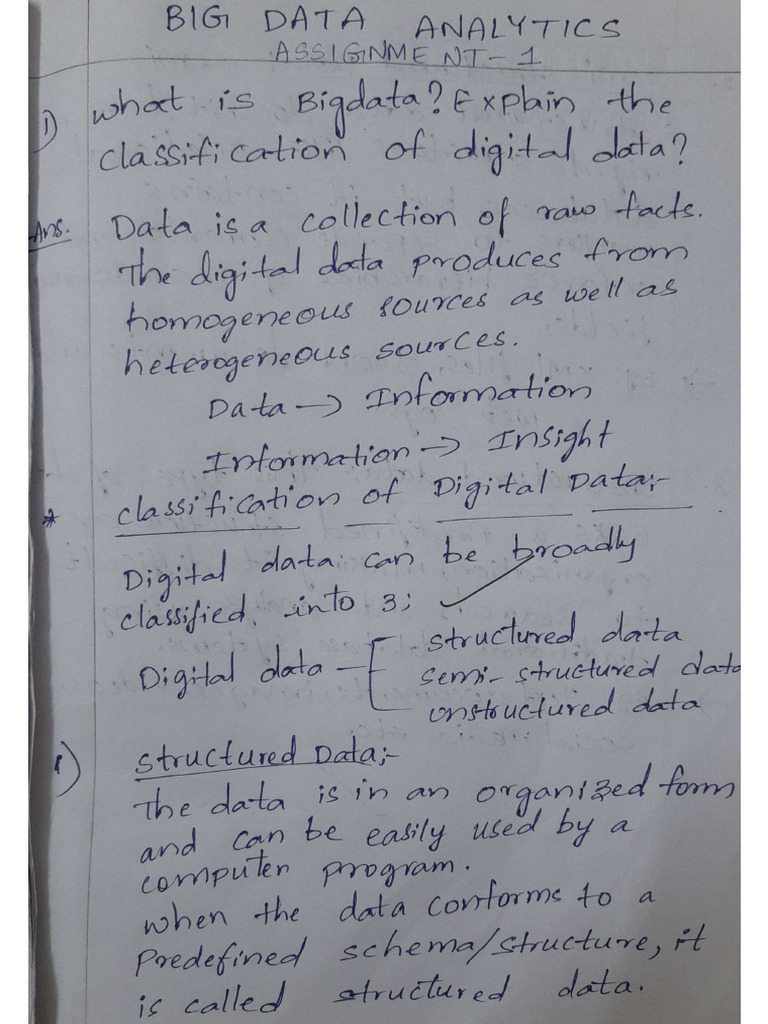 BIG DATA ANALYTICS
ASSIGNMENT-1
1) What is Bigdata? Explain the
classification of digital data?
Ans. Data is a collection of raw facts.
The digital data produces from
homogeneous sources as well as
heterogeneous sources.
Data → Information
Information → Insight
* classification of Digital Data:-
Digital data can be broadly
classified into 3;
Digital data - structured data
semi-structured data
unstructured data
1) Structured Data:-
The data is in an organized form
and can be easily used by a
computer program.
when the data conforms to a
Predefined schema/structure, it
is called structured data.